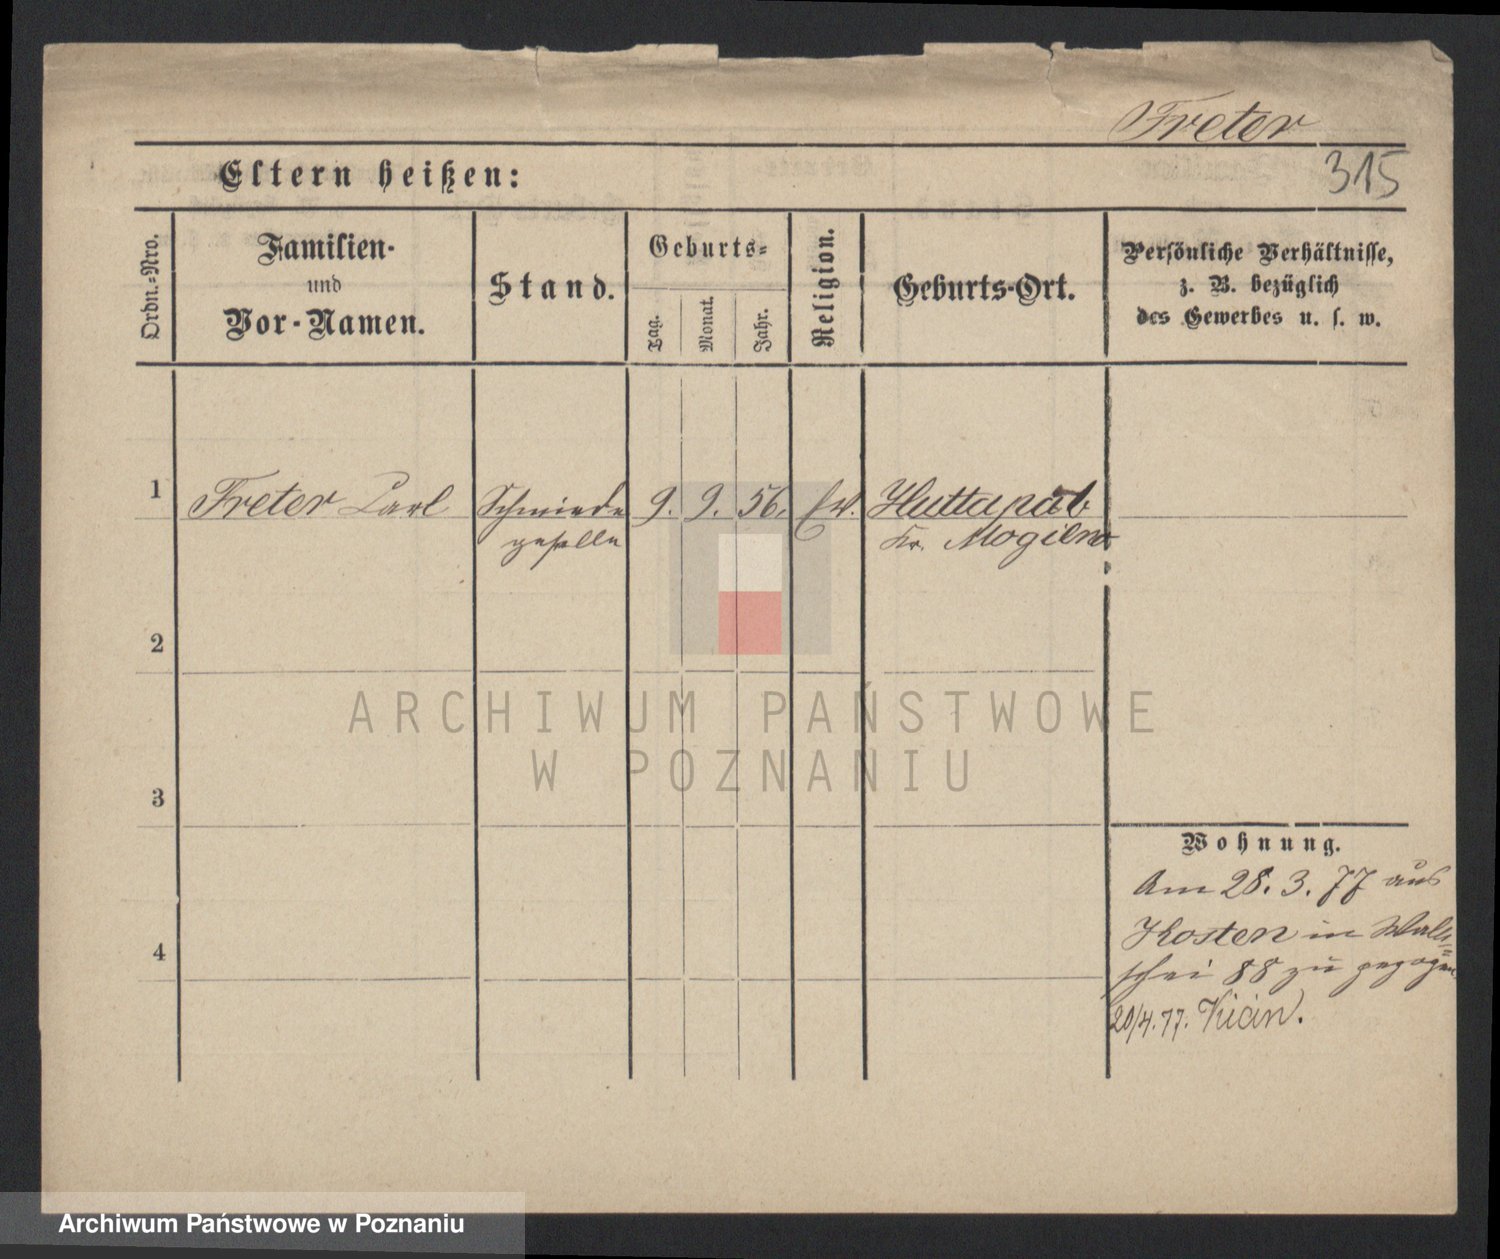 Freter
315
Eltern heißen:
Ordn.-Nro.
Familien-
und
Vor-Namen.
Stand.
Geburts-
Tag.
Monat.
Jahr.
Religion.
Geburts-Ort.
Persönliche Verhältnisse,
z. B. bezüglich
des Gewerbes u. s. w.
1 Freter Carl Schmiede 9. 9. 56. Ev. Huttapal
geselle Kr. Mogilno
2
3
4
Wohnung.
Am 28. 3. 77 aus
Kosten in Walli=
schei 88 zu gezogen
20/4.77. Kicin.
ARCHIWUM PAŃSTWOWE
W POZNANIU
Archiwum Państwowe w Poznaniu